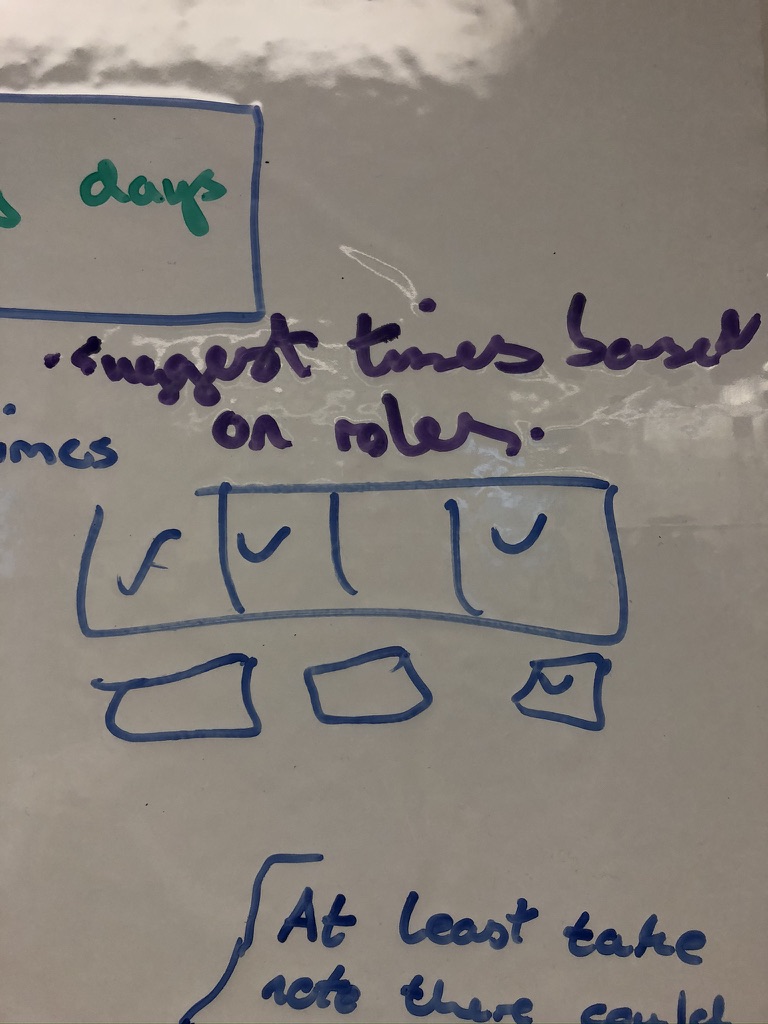 days
· suggest times based
on roles.
At least take
note there could